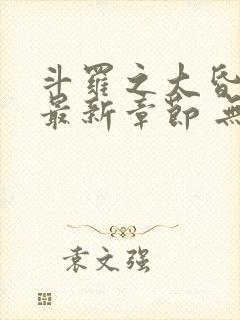 斗羅之大昏
最新章節 無
袁文强